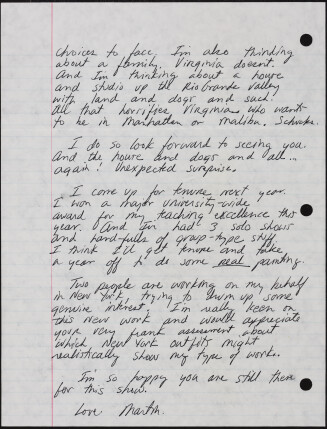 choices to face. I'm also thinking
about a family. Virginia doesn't.
And I'm thinking about a house
and studio up the Rio Grande Valley
with land and dogs and such.
All that horrifies Virginia who wants
to be in Manhattan or Malibu.
I do so look forward to seeing you.
And the house and dogs and all...
again! Unexpected surprise.
I come up for tenure next year.
I won a major University-wide
award for my teaching excellence this
year. And I've had 3 solo shows
and hand-fulls of group-type stuff.
I think I'll get tenure and take
a year off to do some real painting.
Two people are working on my behalf
in New York, trying to drum up some
genuine interest. I'm really keen on
this new work and would appreciate
your very frank assessment about
which New York outfits might
realistically show my type of work.
I'm so happy you are still there
for this show.
Love Martin